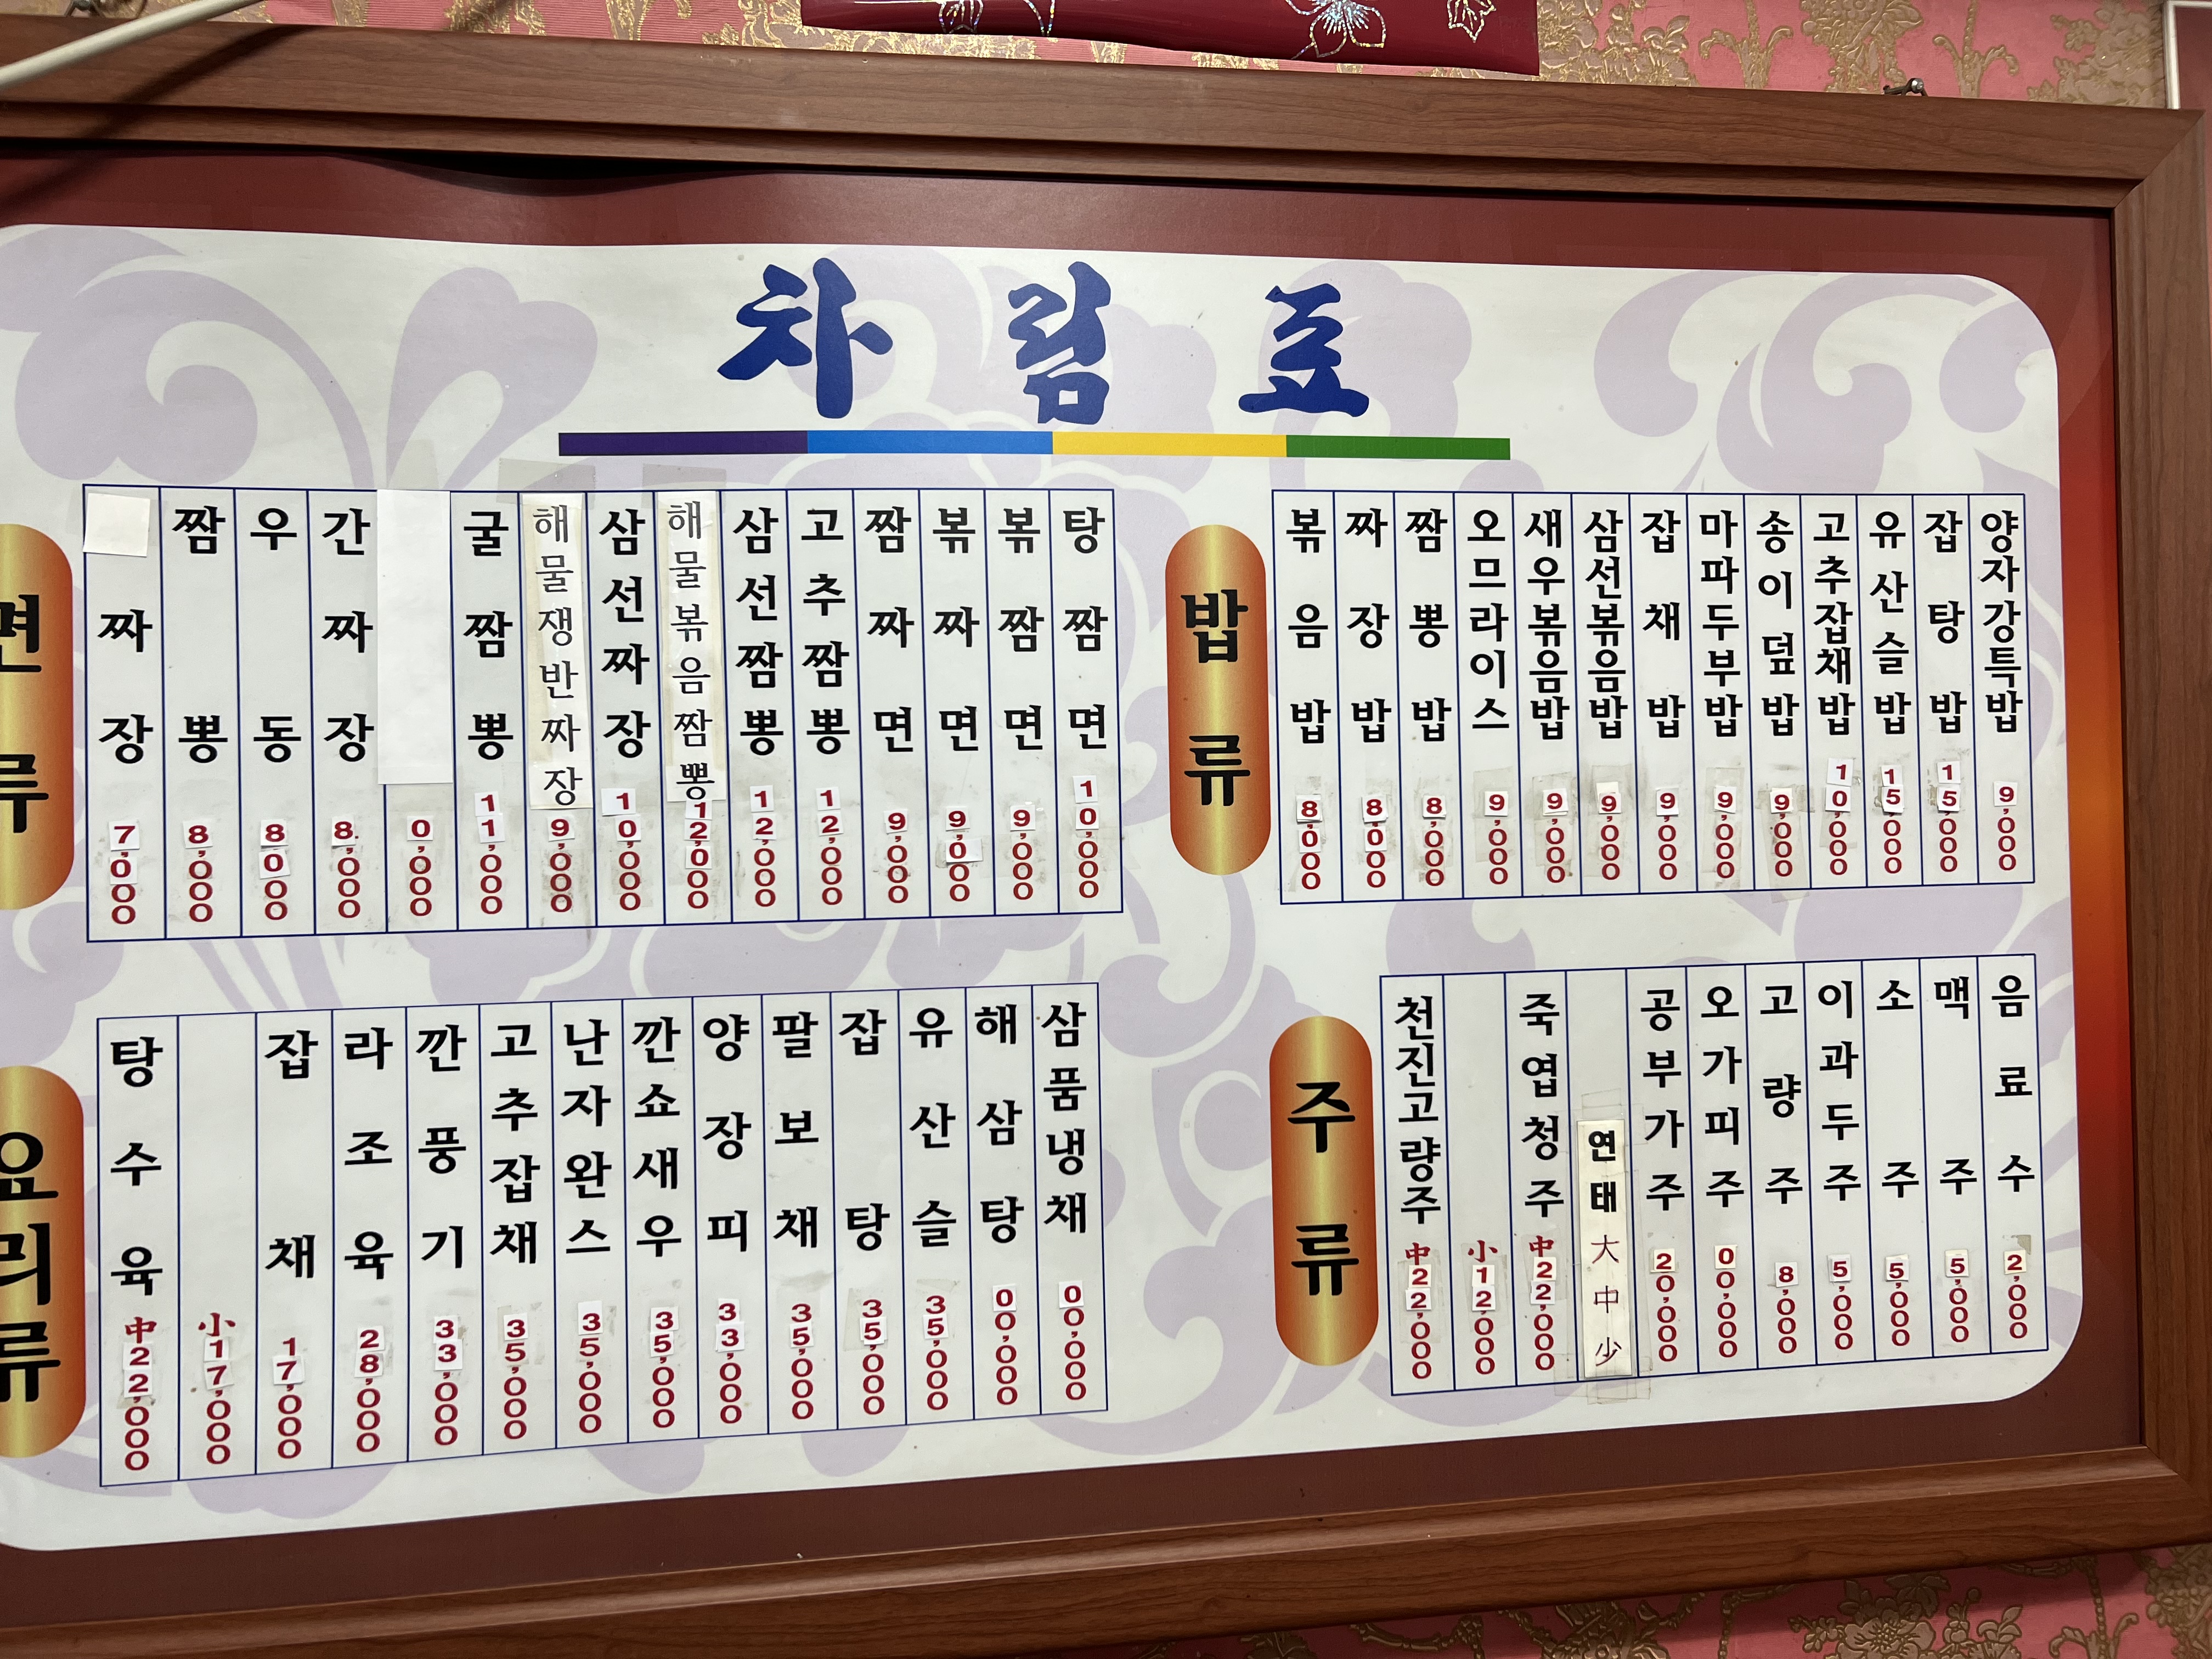 차림표
면류
짜장 7,000
짬뽕 8,000
우동 8,000
간짜장 8,000
0,000
굴짬뽕 11,000
해물쟁반짜장 9,000
삼선짜장 10,000
해물볶음짬뽕 12,000
삼선짬뽕 12,000
고추짬뽕 12,000
짬짜면 9,000
볶짜면 9,000
볶짬면 9,000
탕짬면 10,000
밥류
볶음밥 8,000
짜장밥 8,000
짬뽕밥 8,000
오므라이스 9,000
새우볶음밥 9,000
삼선볶음밥 9,000
잡채밥 9,000
마파두부밥 9,000
송이덮밥 9,000
고추잡채밥 10,000
유산슬밥 15,000
잡탕밥 15,000
양자강특밥 9,000
요리류
탕수육 中22,000
小17,000
잡채 17,000
라조육 28,000
깐풍기 33,000
고추잡채 35,000
난자완스 35,000
깐쇼새우 35,000
양장피 33,000
팔보채 35,000
잡탕 35,000
유산슬 35,000
해삼탕 00,000
삼품냉채 00,000
주류
천진고량주 中22,000
小12,000
죽엽청주 中22,000
연태 大 中 少
공부가주 20,000
오가피주 00,000
고량주 8,000
이과두주 5,000
소주 5,000
맥주 5,000
음료수 2,000